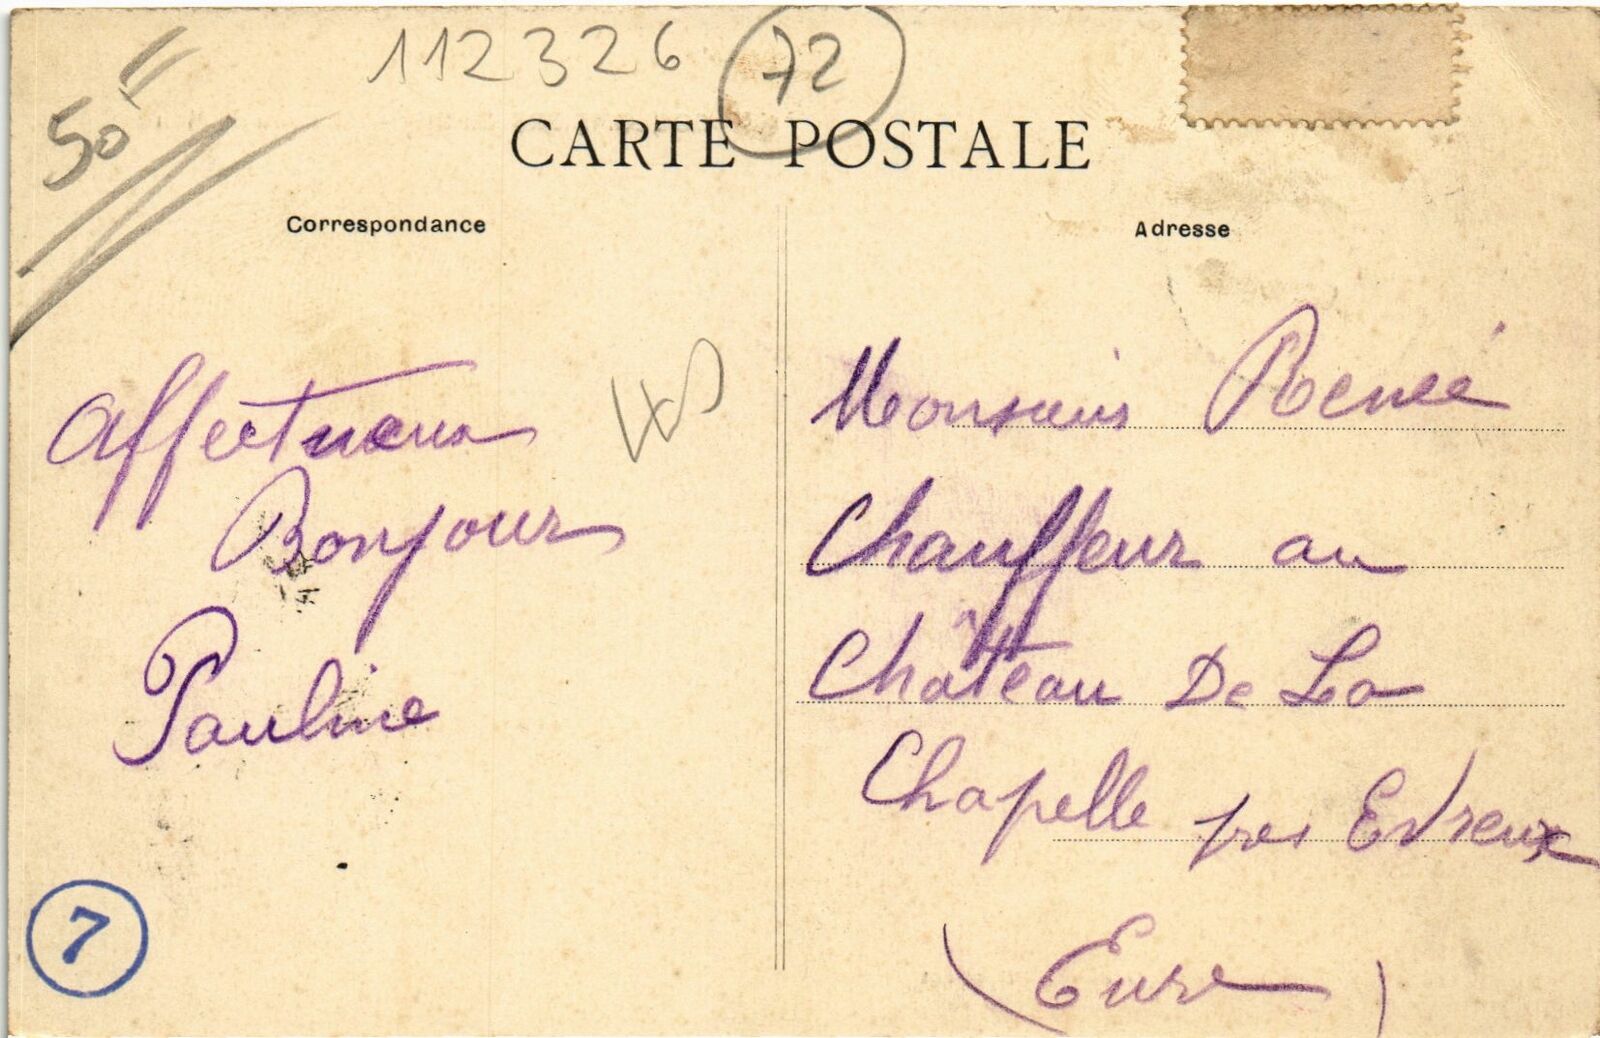 50
112326
72
CARTE POSTALE
Correspondance
Adresse
Affectueux
Bonjour
Pauline
Monsieur Renée
Chauffeur au
Château De La
Chapelle pres Evreux
(Eure)
7